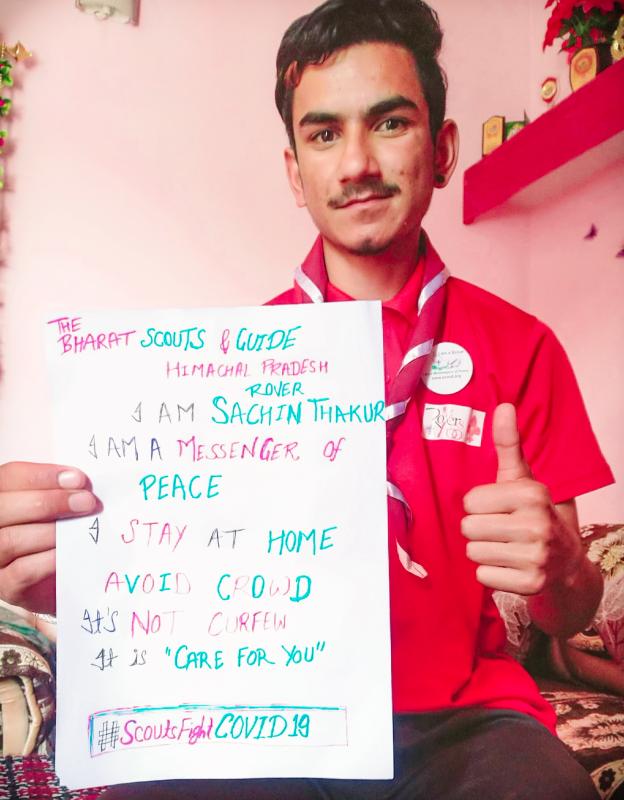 THE
BHARAT SCOUTS & GUIDE
HIMACHAL PRADESH
ROVER
I AM SACHIN THAKUR
I AM A MESSENGER OF
PEACE
I STAY AT HOME
AVOID CROWD
It's NOT CURFEW
It is "CARE FOR YOU"
#ScoutsFight COVID19
I am a Scout
Rovers